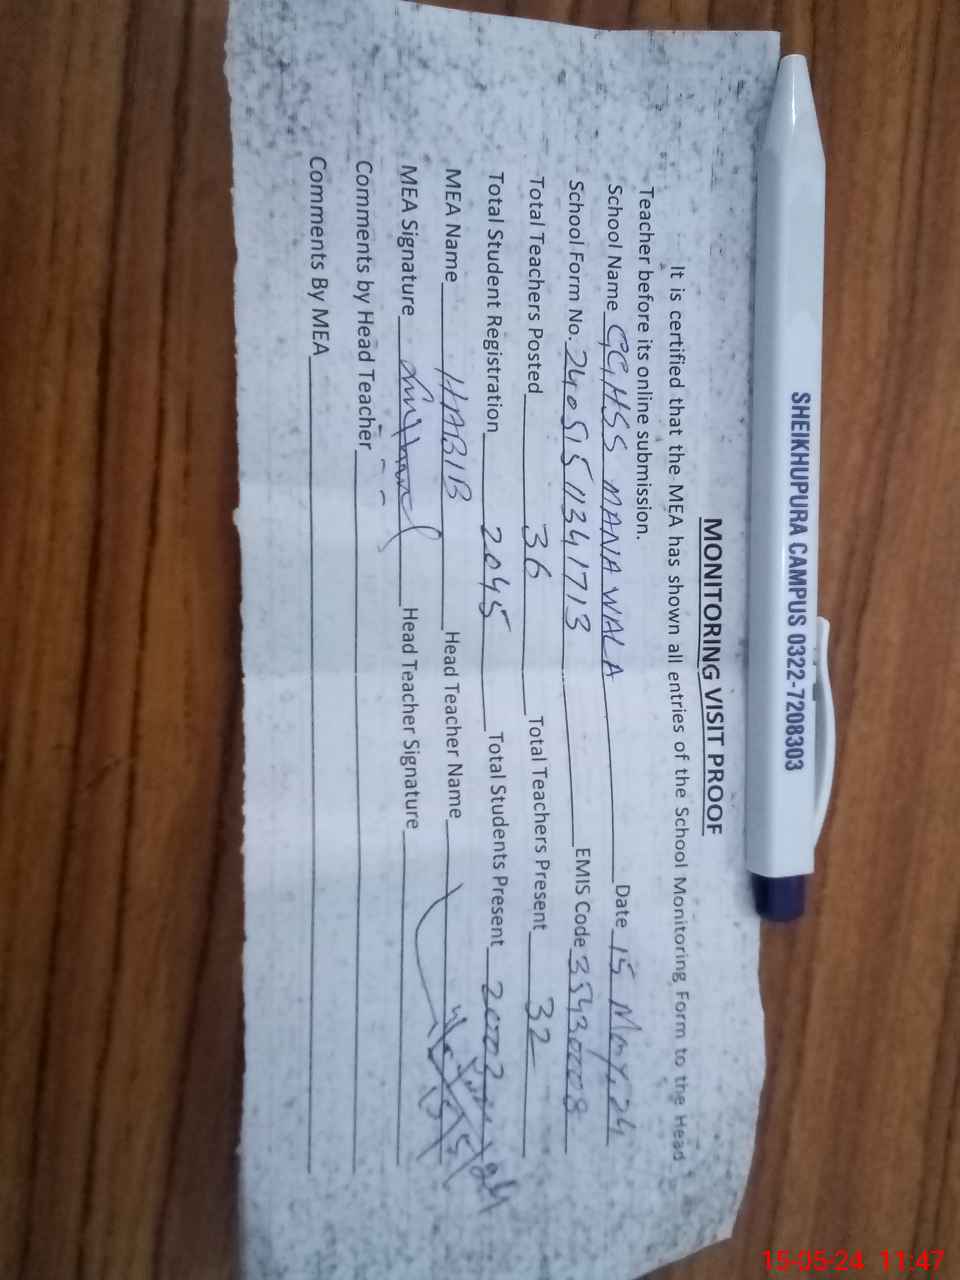 SHEIKHUPURA CAMPUS 0322-7208303
MONITORING VISIT PROOF
It is certified that the MEA has shown all entries of the School Monitoring Form to the Head
Teacher before its online submission.
School Name GGHSS MANAWALA Date 15 May, 24
School Form No. 24051511341713 EMIS Code 35430008
Total Teachers Posted 36 Total Teachers Present 32
Total Student Registration 2045 Total Students Present
MEA Name HABIB Head Teacher Name
MEA Signature Head Teacher Signature
Comments by Head Teacher
Comments By MEA
15-05-24 11:47